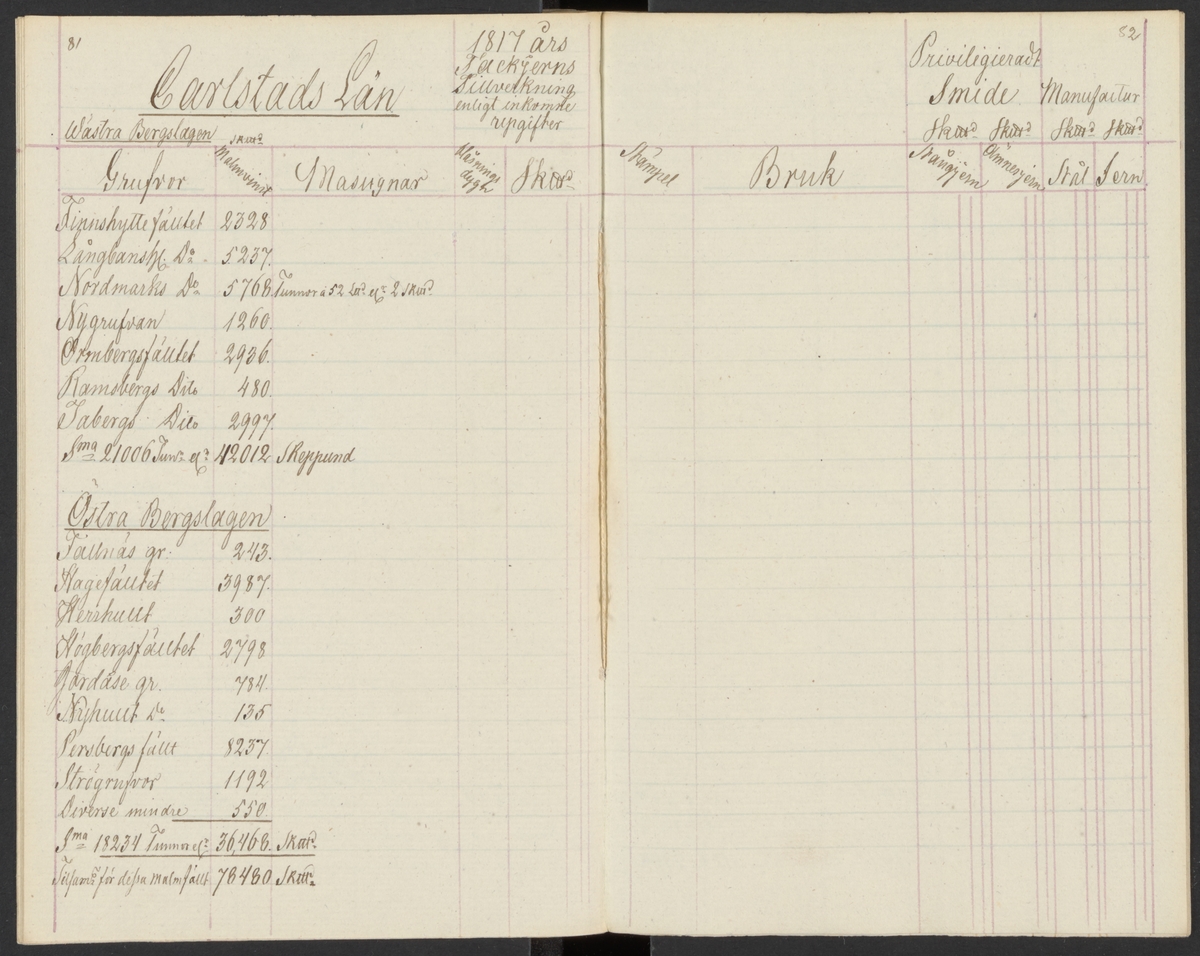 81
1817 års
Tackjerns
Tillverkning
enligt inkomne
uppgifter
Carlstads Län
Wästra Bergslagen
Skttd
Grufvor
Malmvinst
Masugnar
Blåsnings
dygn
Skttd
Finnshytte fältet 2328
Långbanshl. Do 5237.
Nordmarks Do 5768. Tunnor a 52 Lod. elr 2 Skttd
Nygrufvan 1260.
Ormbergsfältet 2936.
Ramsbergs Dito 480.
Tabergs Dito 2997.
Sma 21006 Tunr elr 42012 Skeppund
Östra Bergslagen
Tallnäs gr. 243.
Hagefältet 3987.
Herrhult 300
Högbergsfältet 2798
Jordåse gr. 784.
Nyhult Do 135
Persbergs fällt 8237.
Strögrufvor 1192
Diverse mindre 550.
Sma 18234 Tunnor elr 36,468. Skttd
Tilsams för dessa malmfällt 78480 Skttd
82
Priviligieradt
Smide Manufactur
Skttd Skttd Skttd Skttd
Stämpel
Bruk
Stångjern
Ämnesjern
Stål
Jern